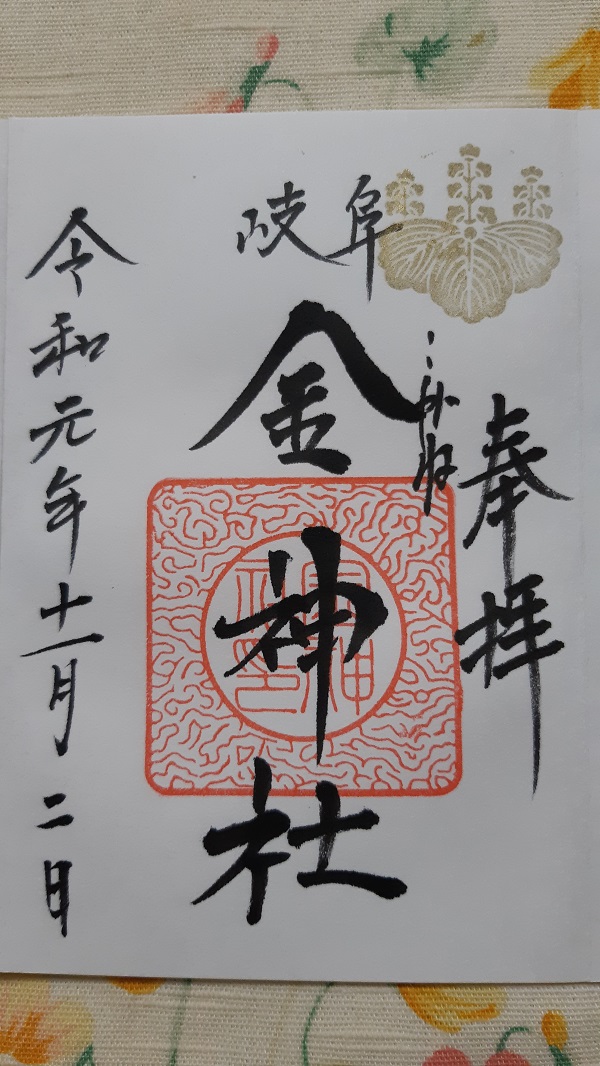 奉拝
岐阜
こがね
金神社
令和元年十一月二日